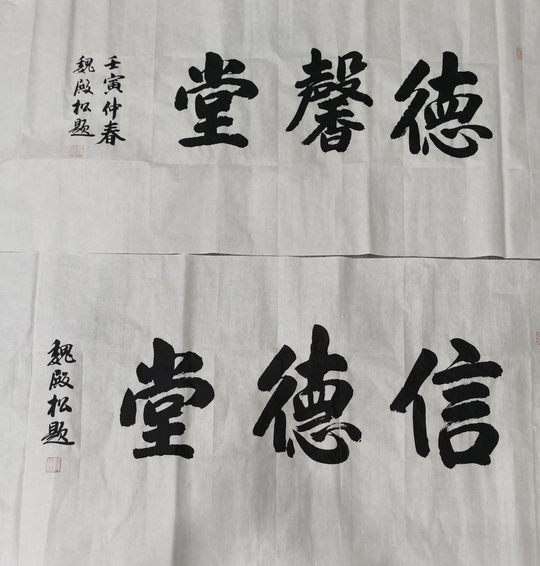 德馨堂
壬寅仲春
魏殿松题
信德堂
魏殿松题